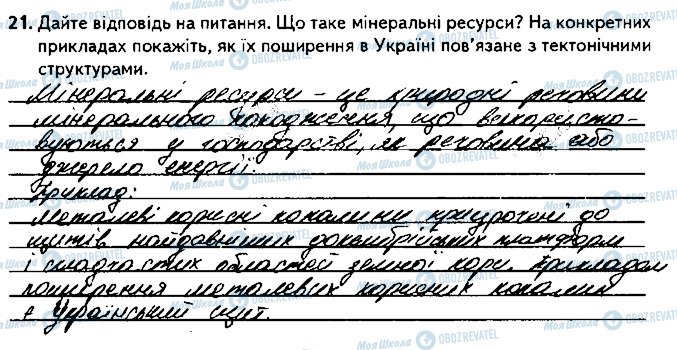 21. Дайте відповідь на питання. Що таке мінеральні ресурси? На конкретних
прикладах покажіть, як їх поширення в Україні пов'язане з тектонічними
структурами.
Мінеральні ресурси – це природні речовини
мінерального походження, що використо-
вуються у господарстві, як речовина або
джерела енергії.
Приклад:
Металеві корисні копалини приурочені до
щитів найдавніших докембрійських платформ
і складчастих областей земної кори. Прикладом
поширення металевих корисних копалин
є Український щит.